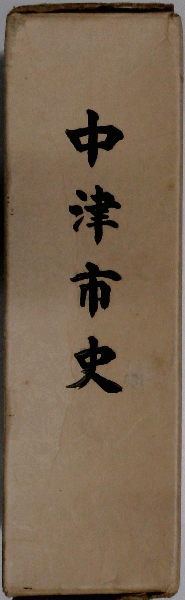 中津市史